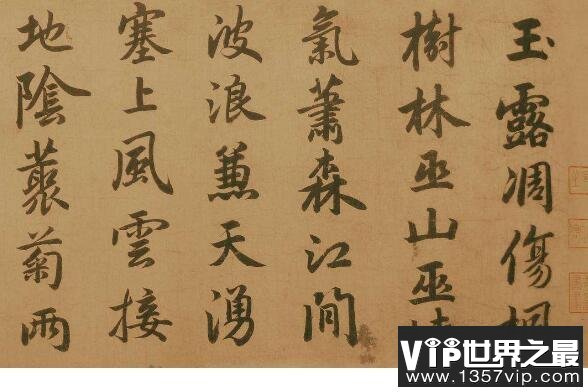 玉露凋傷楓
樹林巫山巫
氣蕭森江間
波浪蒹天湧
塞上風雲接
地陰叢菊兩
VIP世界之最
www.1357vip.com